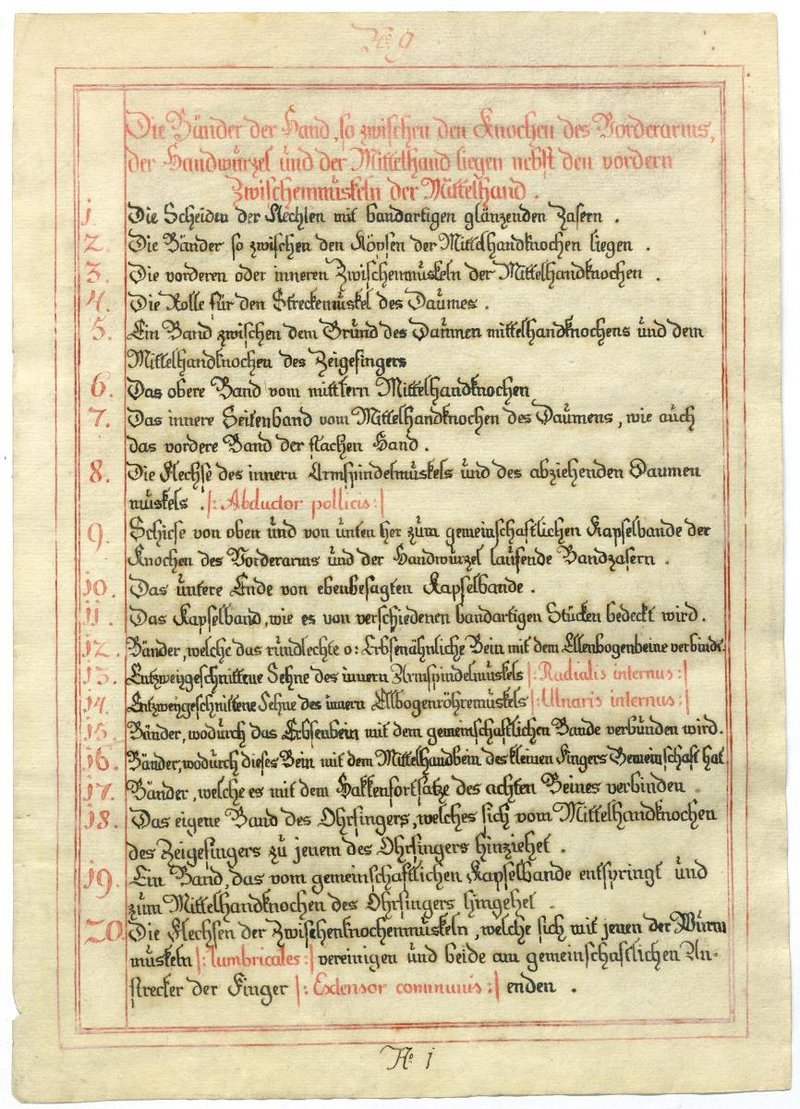 No 9
Die Bänder der Hand, so zwischen den Knochen des Vorderarms,
der Handwürzel und der Mittelhand liegen nebst den vordern
Zwischenmuskeln der Mittelhand.
1 Die Scheiden der Flechsen mit bandartigen glänzenden Zasern.
2. Die Bänder so zwischen den Köpfen der Mittelhandknochen liegen.
3. Die vorderen oder inneren Zwischenmuskeln der Mittelhandknochen.
4. Die Rolle für den Streckemuskel des Daumes.
5. Ein Band zwischen dem Grund des Daumen mittelhandknochens und dem
Mittelhandknochen des Zeigefingers
6. Das obere Band vom mittlern Mittelhandknochen
7. Das innere Seitenband vom Mittelhandknochen des Daumens, wie auch
das vordere Band der flachen Hand.
8. Die Flechse des innern Armspindelmuskels und des abziehenden Daumen
muskels. |: Abductor pollicis :|
9. Schiefe von oben und von unten her zum gemeinschaftlichen Kapselbande der
Knochen des Vorderarms und der Handwürzel laufende Bandzasern.
10. Das untere Ende von ebenbesagten Kapselbande.
11. Das Kapselband, wie es von verschiedenen bandartigen Stücken bedeckt wird.
12. Bänder, welche das rundlechte o: Erbsenähnliche Bein mit dem Ellenbogenbeine verbindt.
13. Entzweygeschnittene Sehne des innern Armspindelmuskels |: Radialis internus :|
14. Entzweygeschnittene Sehne des innern Ellbogenröhremuskels |: Ulnaris internus :|
15. Bänder, wodurch das Erbsenbein mit dem gemeinschaftlichen Bande verbunden wird.
16. Bänder, wodurch dieses Bein mit dem Mittelhandbein des kleinen Fingers Gemeinschaft hat
17. Bänder, welche es mit dem Hakkenfortsatze des achten Beines verbinden.
18. Das eigene Band des Ohrfingers, welches sich vom Mittelhandknochen
des Zeigefingers zu jenem des Ohrfingers hinziehet.
19. Ein Band, das vom gemeinschaftlichen Kapselbande entspringt und
zum Mittelhandknochen des Ohrfingers hingehet.
20. Die Flechsen der Zwischenknochenmuskeln, welche sich mit jenen der Wurm
muskeln |: lumbricales :| vereinigen und beide am gemeinschaftlichen An-
strecker der Finger |: Extensor communis :| enden.
No 1